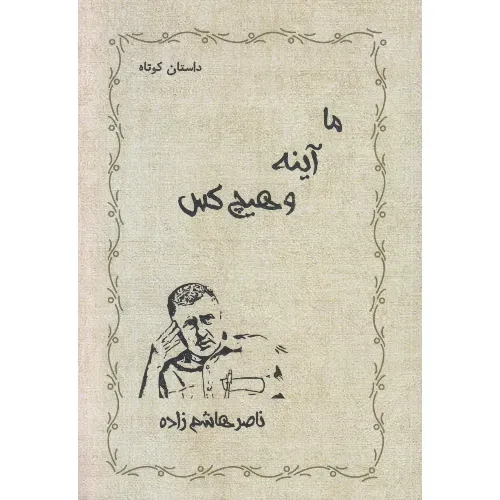 داستان کوتاه
ما
آینه
و هیچ کس
ناصر هاشم زاده